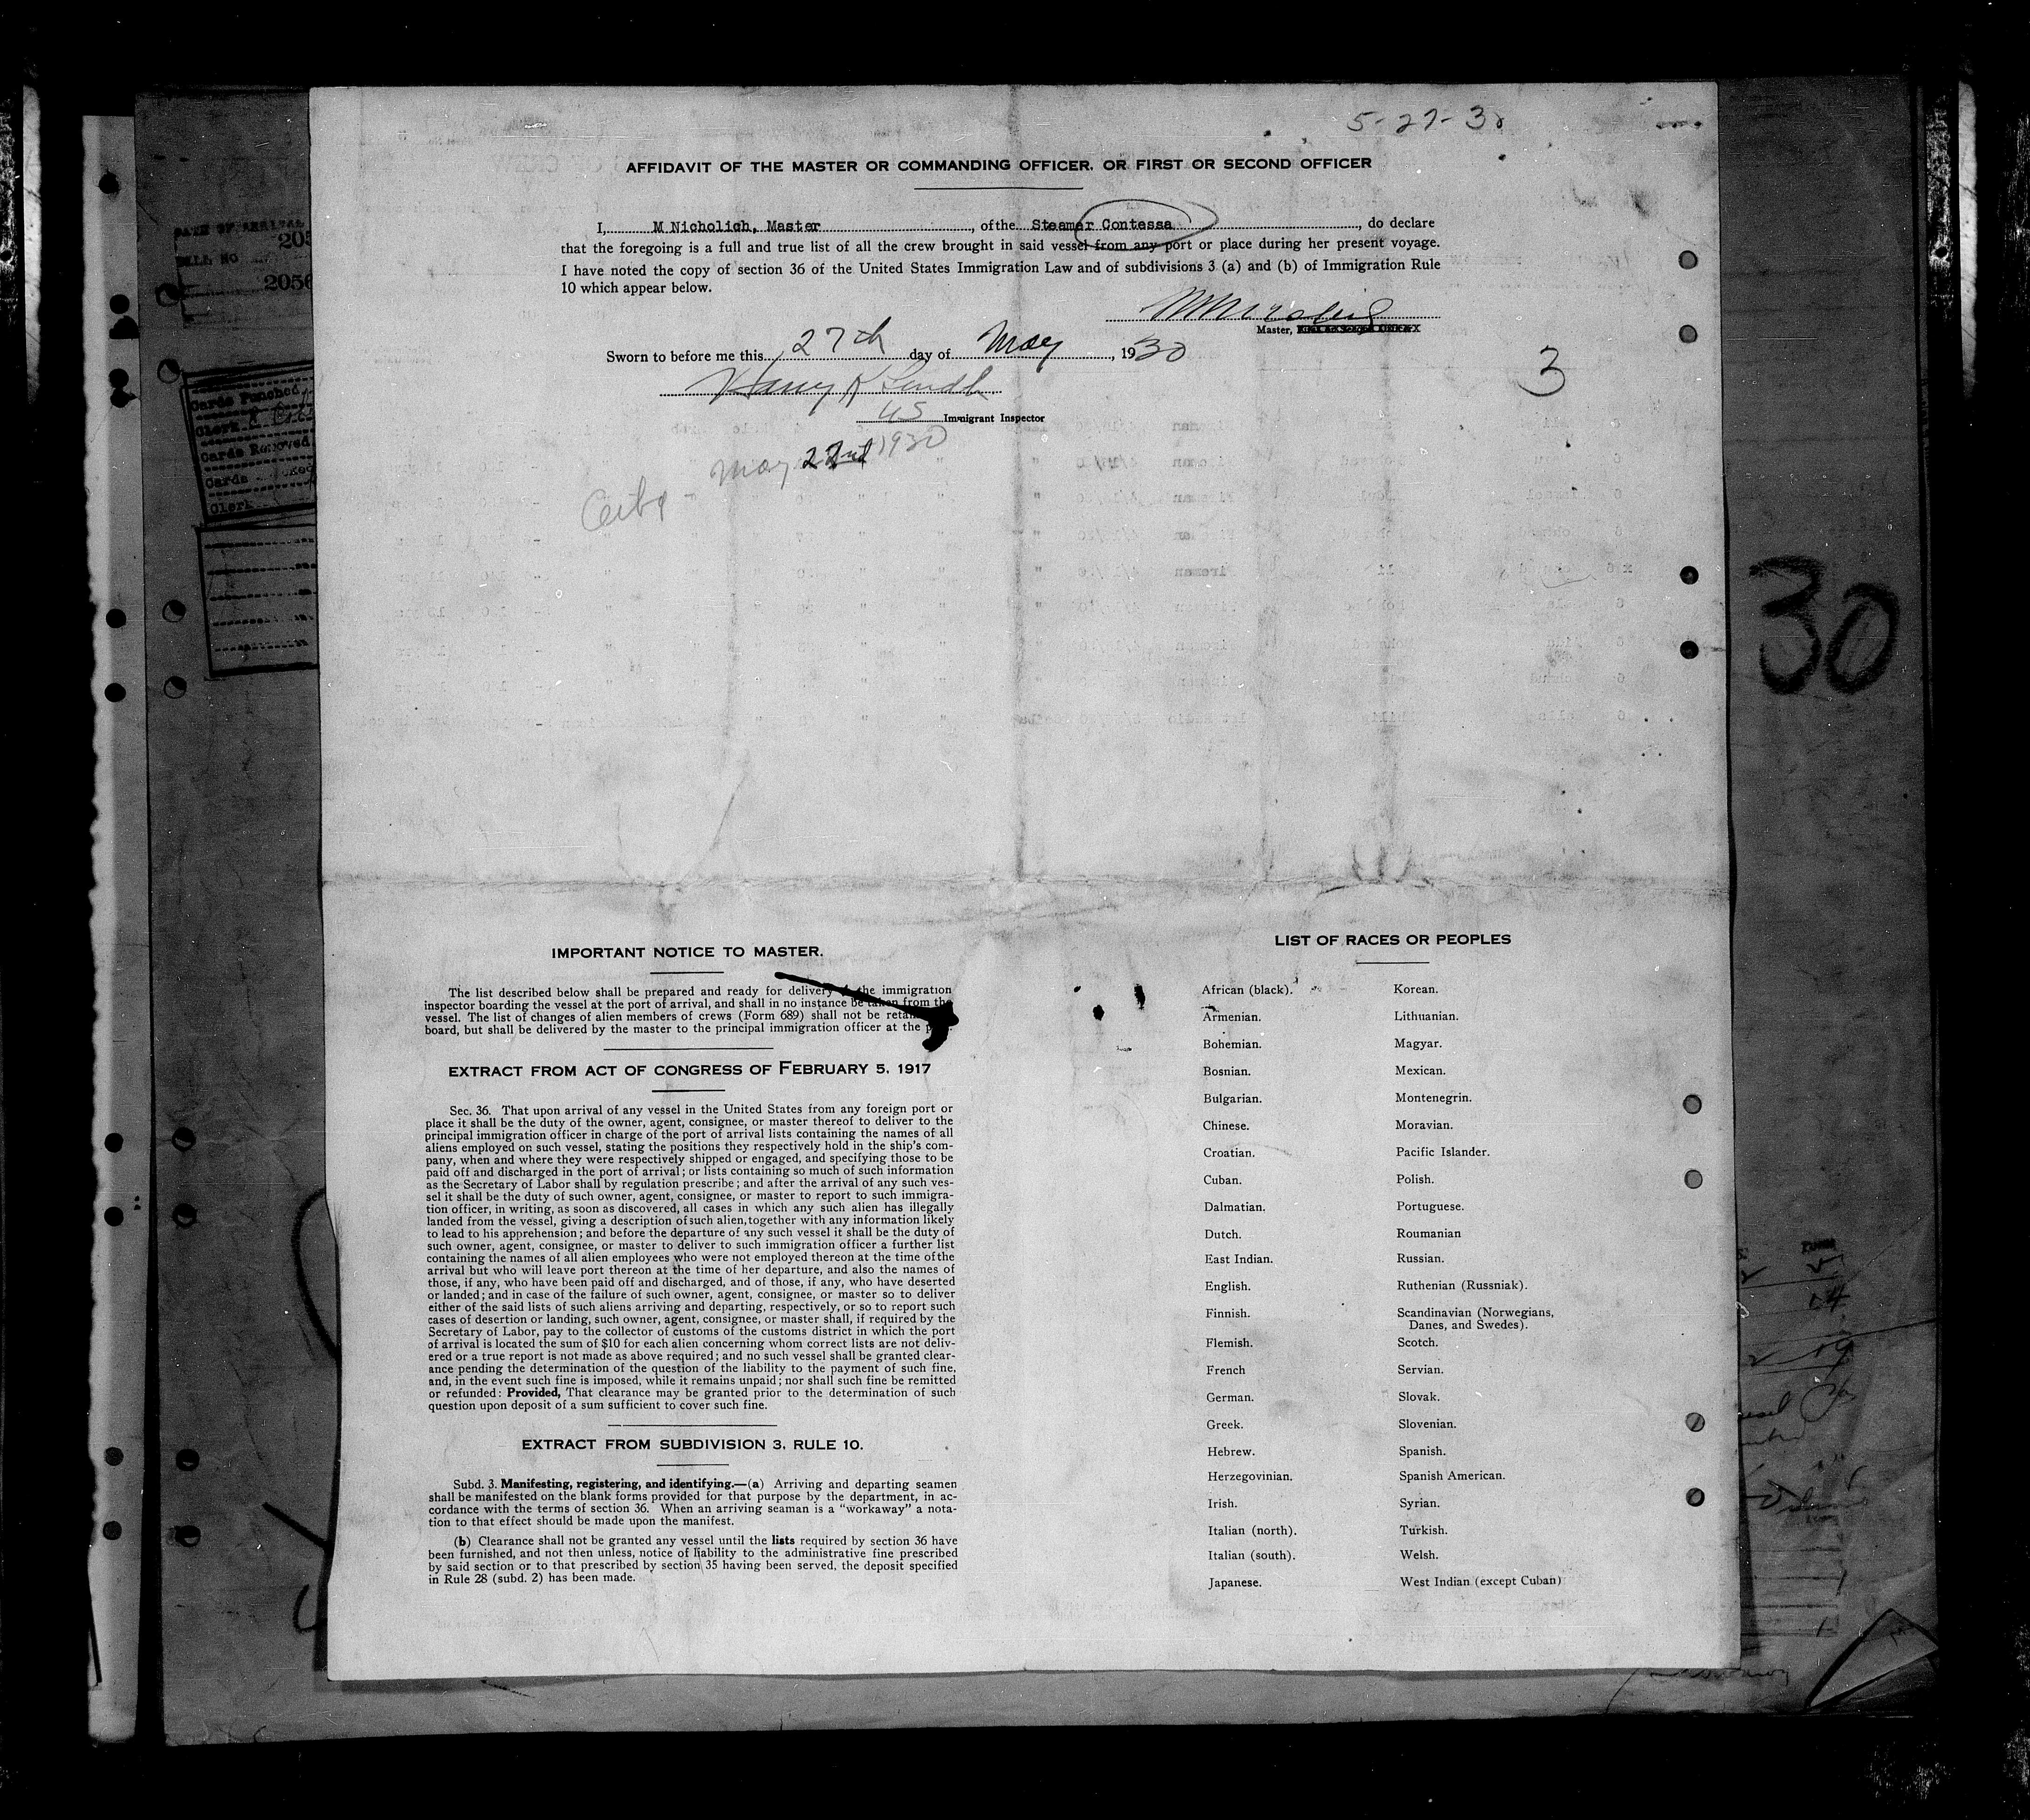 5-27-30
AFFIDAVIT OF THE MASTER OR COMMANDING OFFICER, OR FIRST OR SECOND OFFICER
I, M Nicholich, Master, of the Steamer Contessa, do declare
that the foregoing is a full and true list of all the crew brought in said vessel from any port or place during her present voyage.
I have noted the copy of section 36 of the United States Immigration Law and of subdivisions 3 (a) and (b) of Immigration Rule
10 which appear below.
Master,
Sworn to before me this 27th day of May, 1930
3
Harry
US Immigrant Inspector
May 22nd 1930
Ceiba -
30
DATE OF ARRIVAL
205
2056
Cards Punched
Clerk
Cards Removed
Cards
Clerk
IMPORTANT NOTICE TO MASTER.
The list described below shall be prepared and ready for delivery the immigration
inspector boarding the vessel at the port of arrival, and shall in no instance be taken from the
vessel. The list of changes of alien members of crews (Form 689) shall not be
board, but shall be delivered by the master to the principal immigration officer at the
EXTRACT FROM ACT OF CONGRESS OF FEBRUARY 5, 1917
Sec. 36. That upon arrival of any vessel in the United States from any foreign port or
place it shall be the duty of the owner, agent, consignee, or master thereof to deliver to the
principal immigration officer in charge of the port of arrival lists containing the names of all
aliens employed on such vessel, stating the positions they respectively hold in the ship's com-
pany, when and where they were respectively shipped or engaged, and specifying those to be
paid off and discharged in the port of arrival; or lists containing so much of such information
as the Secretary of Labor shall by regulation prescribe; and after the arrival of any such ves-
sel it shall be the duty of such owner, agent, consignee, or master to report to such immigra-
tion officer, in writing, as soon as discovered, all cases in which any such alien has illegally
landed from the vessel, giving a description of such alien, together with any information likely
to lead to his apprehension; and before the departure of any such vessel it shall be the duty of
such owner, agent, consignee, or master to deliver to such immigration officer a further list
containing the names of all alien employees who were not employed thereon at the time of the
arrival but who will leave port thereon at the time of her departure, and also the names of
those, if any, who have been paid off and discharged, and of those, if any, who have deserted
or landed; and in case of the failure of such owner, agent, consignee, or master so to deliver
either of the said lists of such aliens arriving and departing, respectively, or so to report such
cases of desertion or landing, such owner, agent, consignee, or master shall, if required by the
Secretary of Labor, pay to the collector of customs of the customs district in which the port
of arrival is located the sum of $10 for each alien concerning whom correct lists are not deliv-
ered or a true report is not made as above required; and no such vessel shall be granted clear-
ance pending the determination of the question of the liability to the payment of such fine,
and, in the event such fine is imposed, while it remains unpaid; nor shall such fine be remitted
or refunded: Provided, That clearance may be granted prior to the determination of such
question upon deposit of a sum sufficient to cover such fine.
EXTRACT FROM SUBDIVISION 3, RULE 10.
Subd. 3. Manifesting, registering, and identifying.—(a) Arriving and departing seamen
shall be manifested on the blank forms provided for that purpose by the department, in ac-
cordance with the terms of section 36. When an arriving seaman is a "workaway" a nota-
tion to that effect should be made upon the manifest.
(b) Clearance shall not be granted any vessel until the lists required by section 36 have
been furnished, and not then unless, notice of liability to the administrative fine prescribed
by said section or to that prescribed by section 35 having been served, the deposit specified
in Rule 28 (subd. 2) has been made.
LIST OF RACES OR PEOPLES
African (black).
Armenian.
Bohemian.
Bosnian.
Bulgarian.
Chinese.
Croatian.
Cuban.
Dalmatian.
Dutch.
East Indian.
English.
Finnish.
Flemish.
French
German.
Greek.
Hebrew.
Herzegovinian.
Irish.
Italian (north).
Italian (south).
Japanese.
Korean.
Lithuanian.
Magyar.
Mexican.
Montenegrin.
Moravian.
Pacific Islander.
Polish.
Portuguese.
Roumanian
Russian.
Ruthenian (Russniak).
Scandinavian (Norwegians,
Danes, and Swedes).
Scotch.
Servian.
Slovak.
Slovenian.
Spanish.
Spanish American.
Syrian.
Turkish.
Welsh.
West Indian (except Cuban)